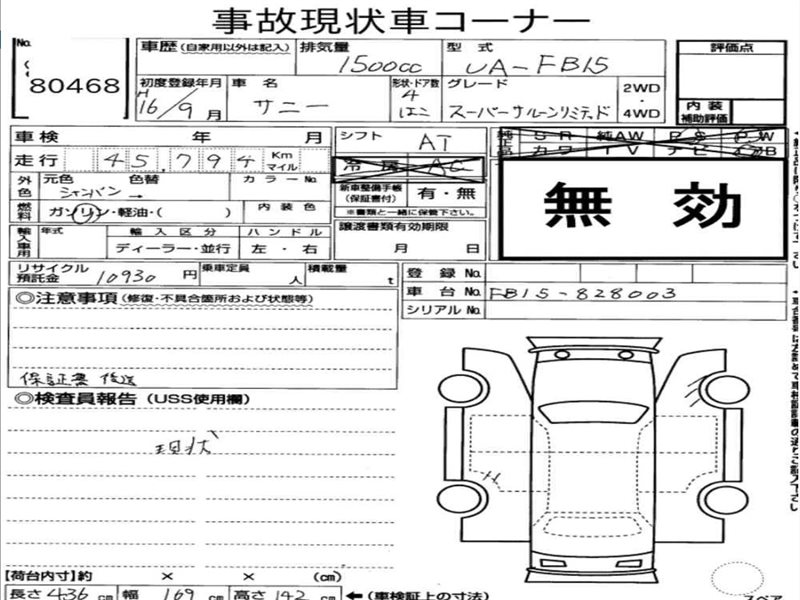 事故現状車コーナー
No. 80468
車歴 (自家用以外は記入) 排気量 1500cc 型式 UA-FB15
評価点
初度登録年月 H 16/9 月 車名 サニー 形状・ドア数 4 はこ グレード スーパーサルーンリミテッド 2WD・4WD
内装補助評価
車検 年 月 シフト AT
純正品 SR 純AW PS PW
走行 45,794 Km マイル 冷房 AC
カワ TV ナビ
外色 元色 シャンパン 色替 → カラーNo.
新車整備手帳 (保証書付) 有・無
※書類と一緒に保管下さい。
無効
燃料 ガソリン・軽油・( ) 内装色
輸入車用 年式 輸入区分 ハンドル
ディーラー・並行 左・右
譲渡書類有効期限
月 日
リサイクル預託金 10930 円 乗車定員 人 積載量 t
登録No.
車台No. FB15-828003
シリアルNo.
◎注意事項 (修復・不具合箇所および状態等)
保証書 後送
◎検査員報告 (USS使用欄)
現状
【荷台内寸】約 × × (cm)
長さ 436 cm 幅 169 cm 高さ 142 cm ←(車検証上の寸法)
スペア